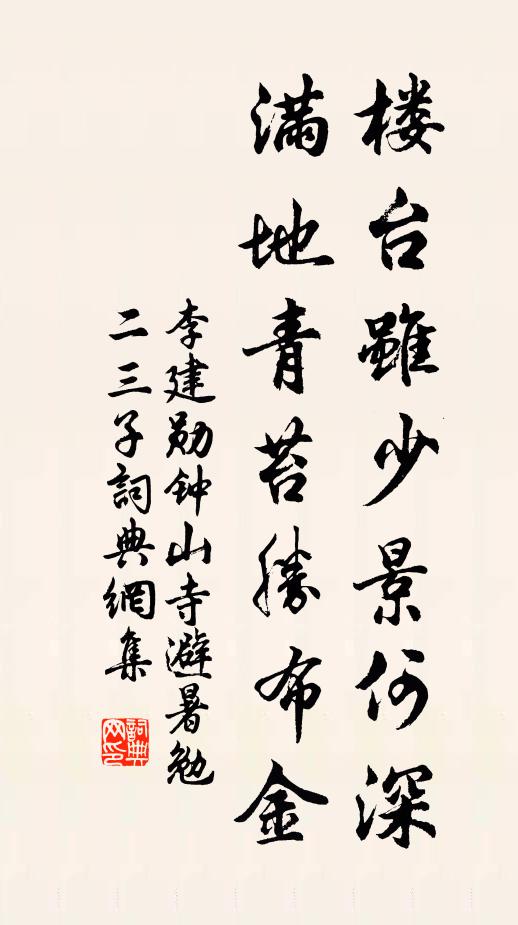 楼台雖少景何深
満地青苔勝布金
李建勛钟山寺避暑勉
二三子詞典網集
詞典
网印